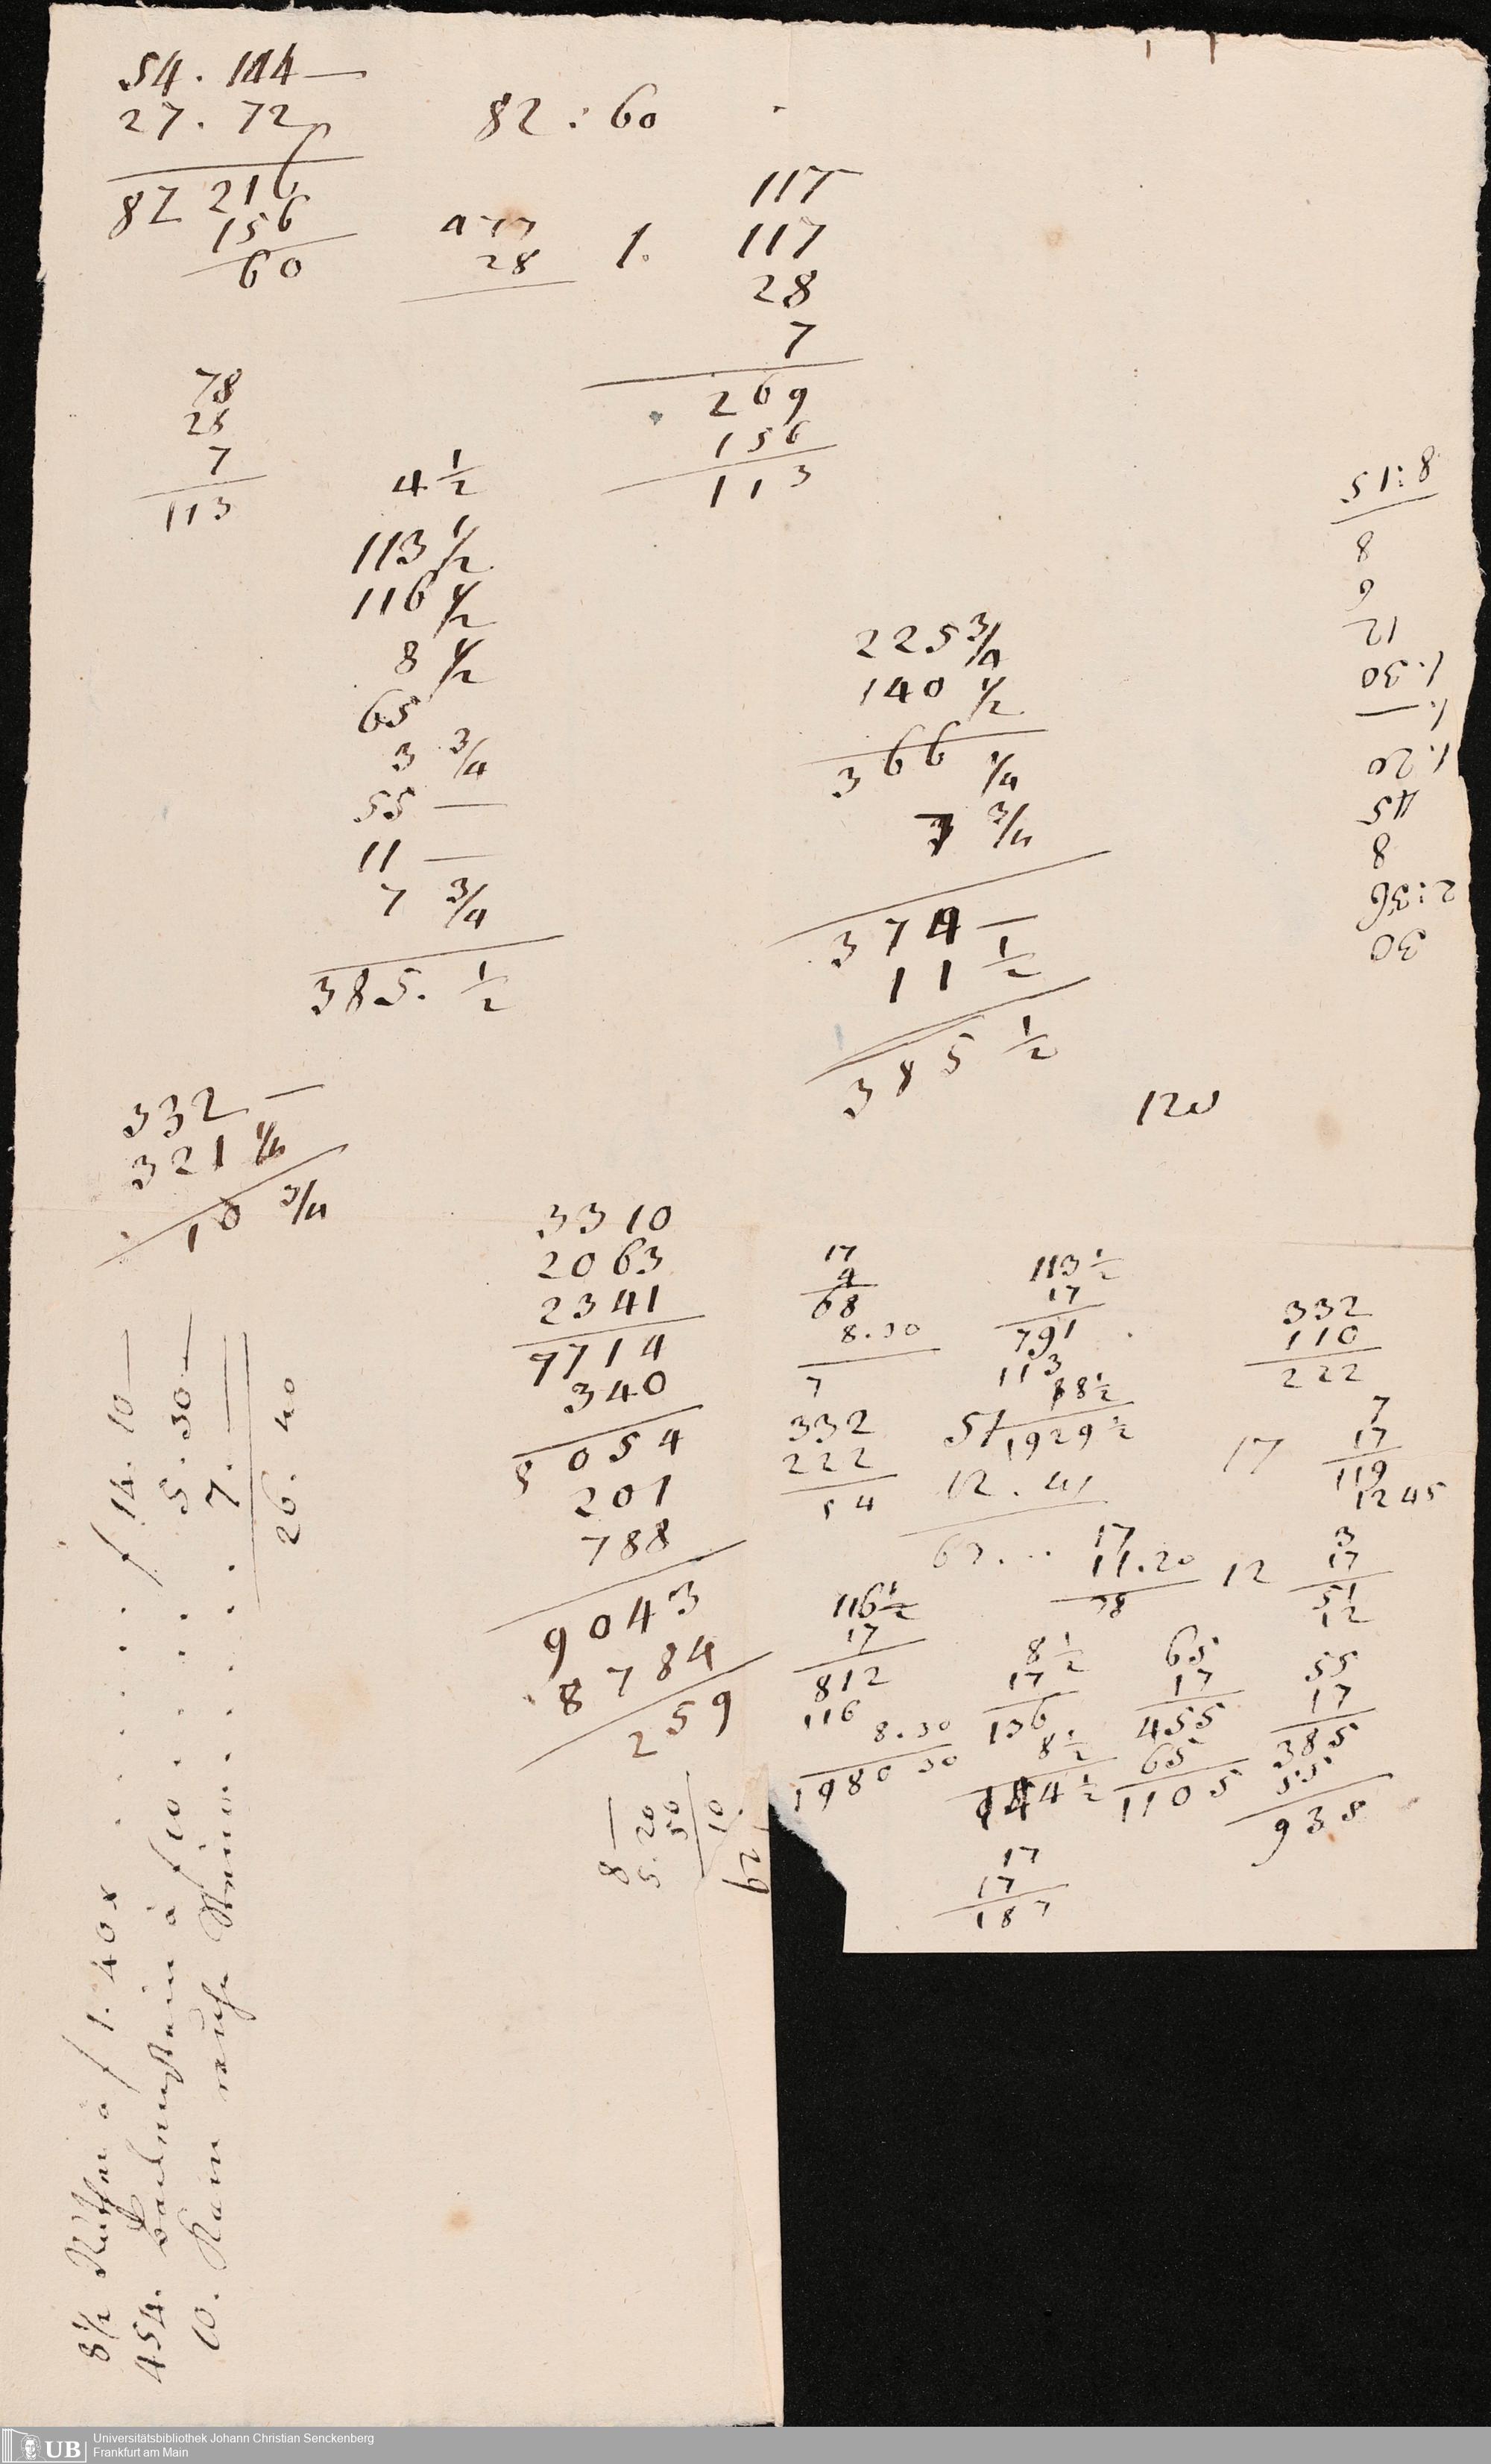 54. 144 —
27. 72
82 216
156
60
82 : 60
28
1.
117
117
28
7
269
156
113
78
28
7
113
4 1/2
113 1/2
116 1/2
8 1/2
65
3 3/4
55 —
11 —
7 3/4
385. 1/2
225 3/4
140 1/2
366 1/4
7 3/4
374 —
11 1/2
385 1/2
30
2:36
8
45
1.20
1. —
1.30
12
9
8
8:15
332 —
321 1/4
10 3/4
3310
2063
2341
7714
340
8054
201
788
9043
8784
259
17
4
68
8.30
7
332
222
54
113 1/2
17
791
113
8 1/2
1929 1/2
51
12. 41
332
110
222
17
7
17
119
1245
17
11.20
78
12
3
17
51
12
116 1/2
17
812
116
8.30
1980 30
8 1/2
17
136
8 1/2
144 1/2
65
17
455
65
1105
55
17
385
55
935
17
17
187
8 —
5. 20
50
10
62
8 1/2 Ruthen a f 1. 40 x . . . . . . f 14. 10 —
454. Backenstein à f 10 . . . . . 5. 30 —
10. Karn rauhe Steine . . . . . . 7. —
26. 40